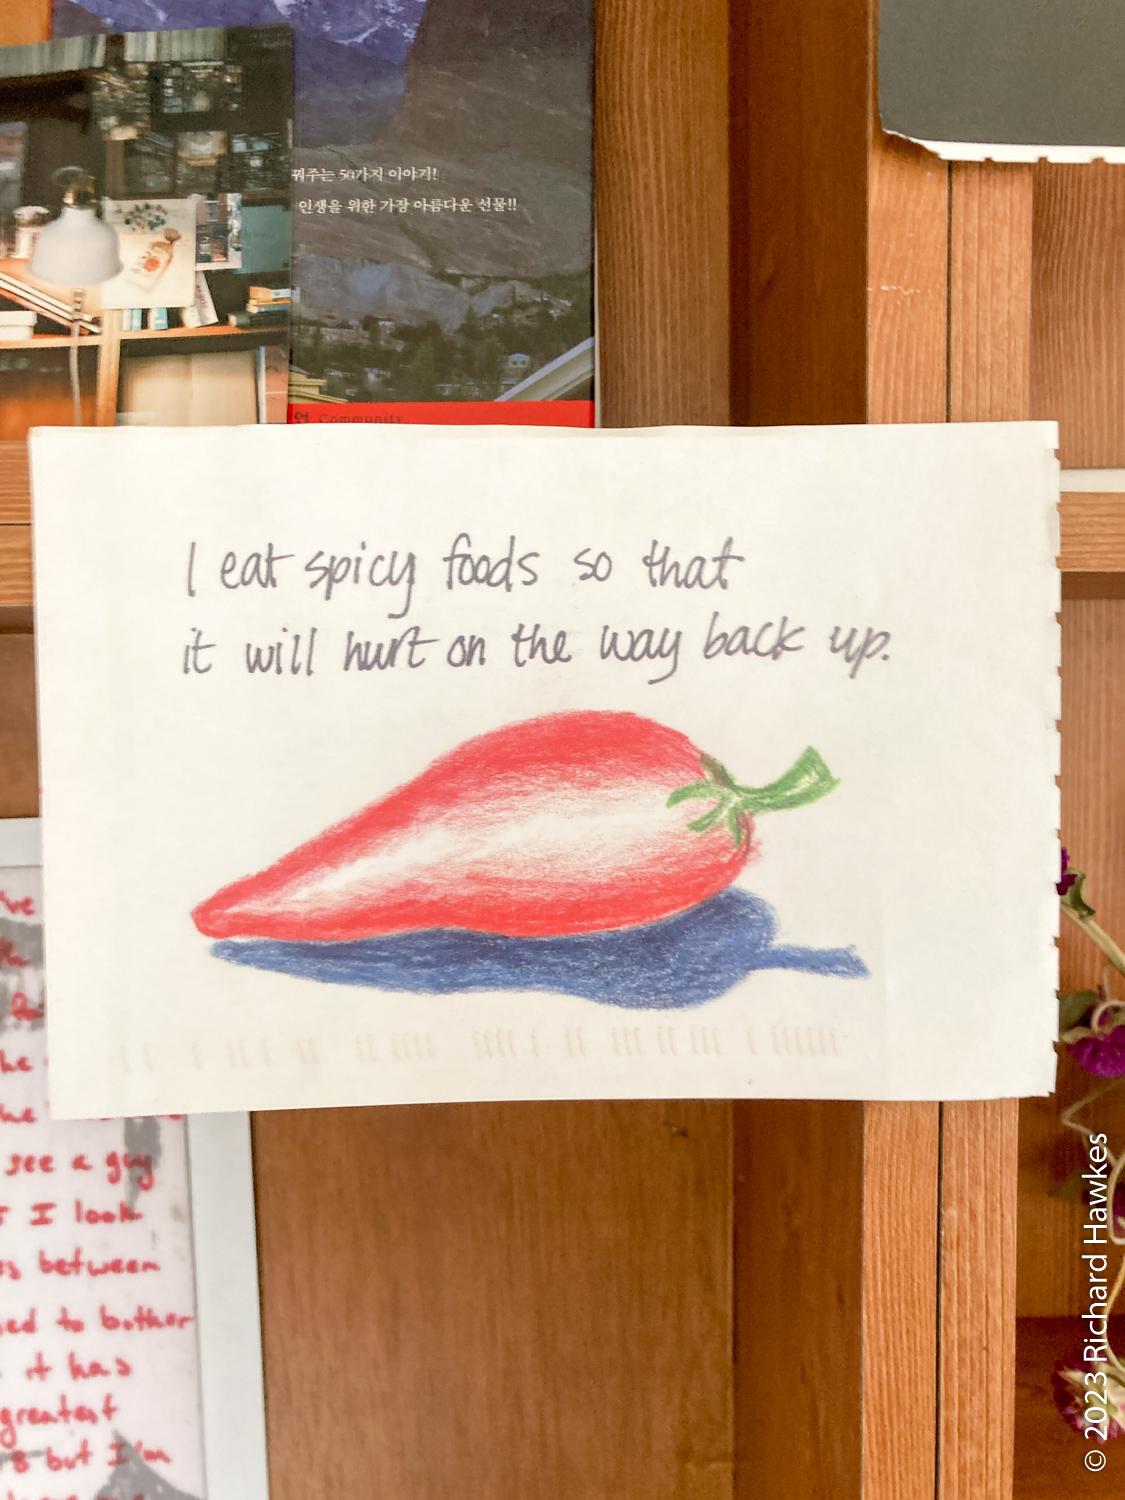 꿔주는 50가지 이야기!
인생을 위한 가장 아름다운 선물!!
Community
I eat spicy foods so that
it will hurt on the way back up.
've
he
he
see a guy
I look
between
to bother
it has
greatest
8 but I'm
© 2023 Richard Hawkes